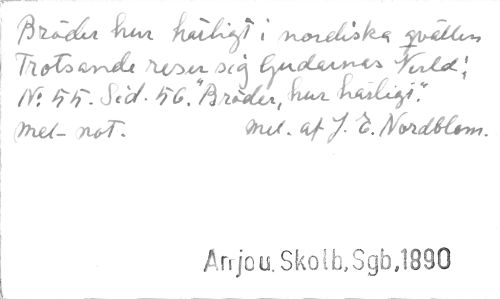 Bröder hur härligt i nordiska qvällen
Trotsande reser sig Gudarnes Verld!
No. 55. Sid. 56. "Bröder, hur härligt".
mel- not. mel. af J. E. Nordblom.
Arrjou. Skolb, Sgb, 1890